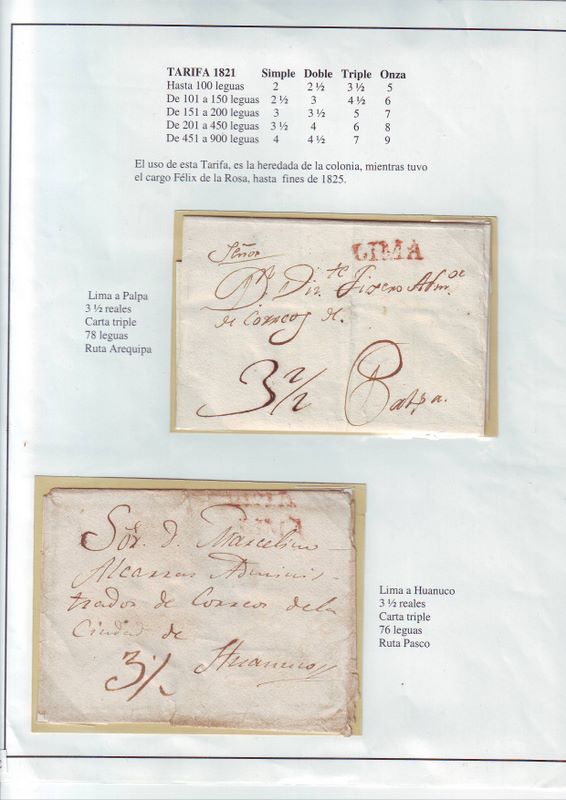 TARIFA 1821 Simple Doble Triple Onza
Hasta 100 leguas 2 2 ½ 3 ½ 5
De 101 a 150 leguas 2 ½ 3 4 ½ 6
De 151 a 200 leguas 3 3 ½ 5 7
De 201 a 450 leguas 3 ½ 4 6 8
De 451 a 900 leguas 4 4 ½ 7 9
El uso de esta Tarifa, es la heredada de la colonia, mientras tuvo
el cargo Félix de la Rosa, hasta fines de 1825.
Señor
LIMA
Adm.
de Correos de.
3 2/2 Palpa.
Lima a Palpa
3 ½ reales
Carta triple
78 leguas
Ruta Arequipa
Sor. D. Marcelino
Alcarraz Adminis-
trador de Correos de la
Ciudad de
3/. Huanuco
Lima a Huanuco
3 ½ reales
Carta triple
76 leguas
Ruta Pasco